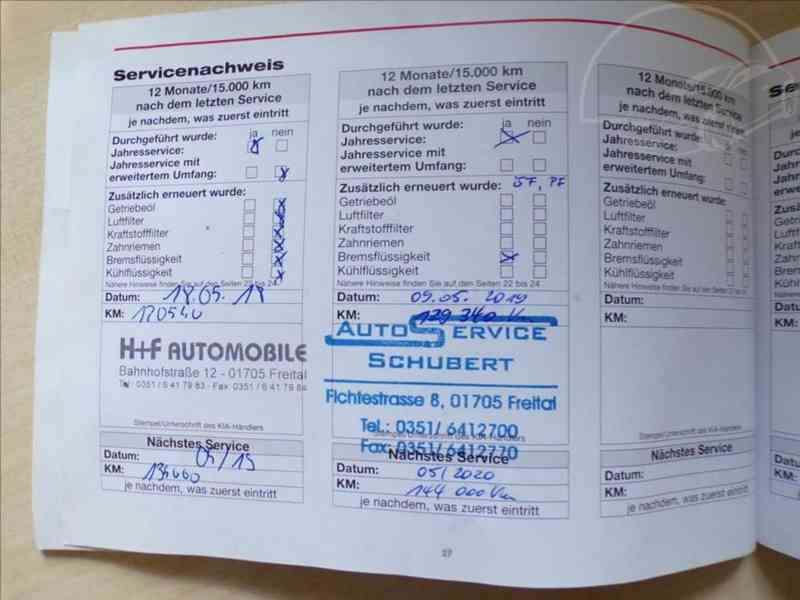 Servicenachweis
12 Monate/15.000 km
nach dem letzten Service
je nachdem, was zuerst eintritt
Durchgeführt wurde: ja nein
Jahresservice:
Jahresservice mit
erweitertem Umfang:
Zusätzlich erneuert wurde:
Getriebeöl
Luftfilter
Kraftstofffilter
Zahnriemen
Bremsflüssigkeit
Kühlflüssigkeit
Nähere Hinweise finden Sie auf den Seiten 22 bis 24
Datum: 18.05.18
KM: 120540
H+F AUTOMOBILE
Bahnhofstraße 12 - 01705 Freital
Tel.: 0351 / 6 41 79 83 - Fax 0351 / 6 41 79 84
Stempel/Unterschrift des KIA-Händlers
Nächstes Service
Datum: 05/19
KM:
je nachdem, was zuerst eintritt
12 Monate/15.000 km
nach dem letzten Service
je nachdem, was zuerst eintritt
Durchgeführt wurde: ja nein
Jahresservice:
Jahresservice mit
erweitertem Umfang:
Zusätzlich erneuert wurde: JF, PF
Getriebeöl
Luftfilter
Kraftstofffilter
Zahnriemen
Bremsflüssigkeit
Kühlflüssigkeit
Nähere Hinweise finden Sie auf den Seiten 22 bis 24
Datum: 09.05.2019
KM: 129 340 Km
AUTO SERVICE
SCHUBERT
Fichtestrasse 8, 01705 Freital
Tel.: 0351/6412700
Stempel/Unterschrift des KIA-Händlers
Fax: 0351/6412770
Nächstes Service
Datum: 05/2020
KM: 144 000 Km
je nachdem, was zuerst eintritt
12 Monate/15.000 km
nach dem letzten Service
je nachdem, was zuerst eintritt
Durchgeführt wurde: ja nein
Jahresservice:
Jahresservice mit
erweitertem Umfang:
Zusätzlich erneuert wurde:
Getriebeöl
Luftfilter
Kraftstofffilter
Zahnriemen
Bremsflüssigkeit
Kühlflüssigkeit
Nähere Hinweise finden Sie auf den Seiten 22 bis 24
Datum:
KM:
Stempel/Unterschrift des KIA-Händlers
Nächstes Service
Datum:
KM:
je nachdem, was zuerst eintritt
27